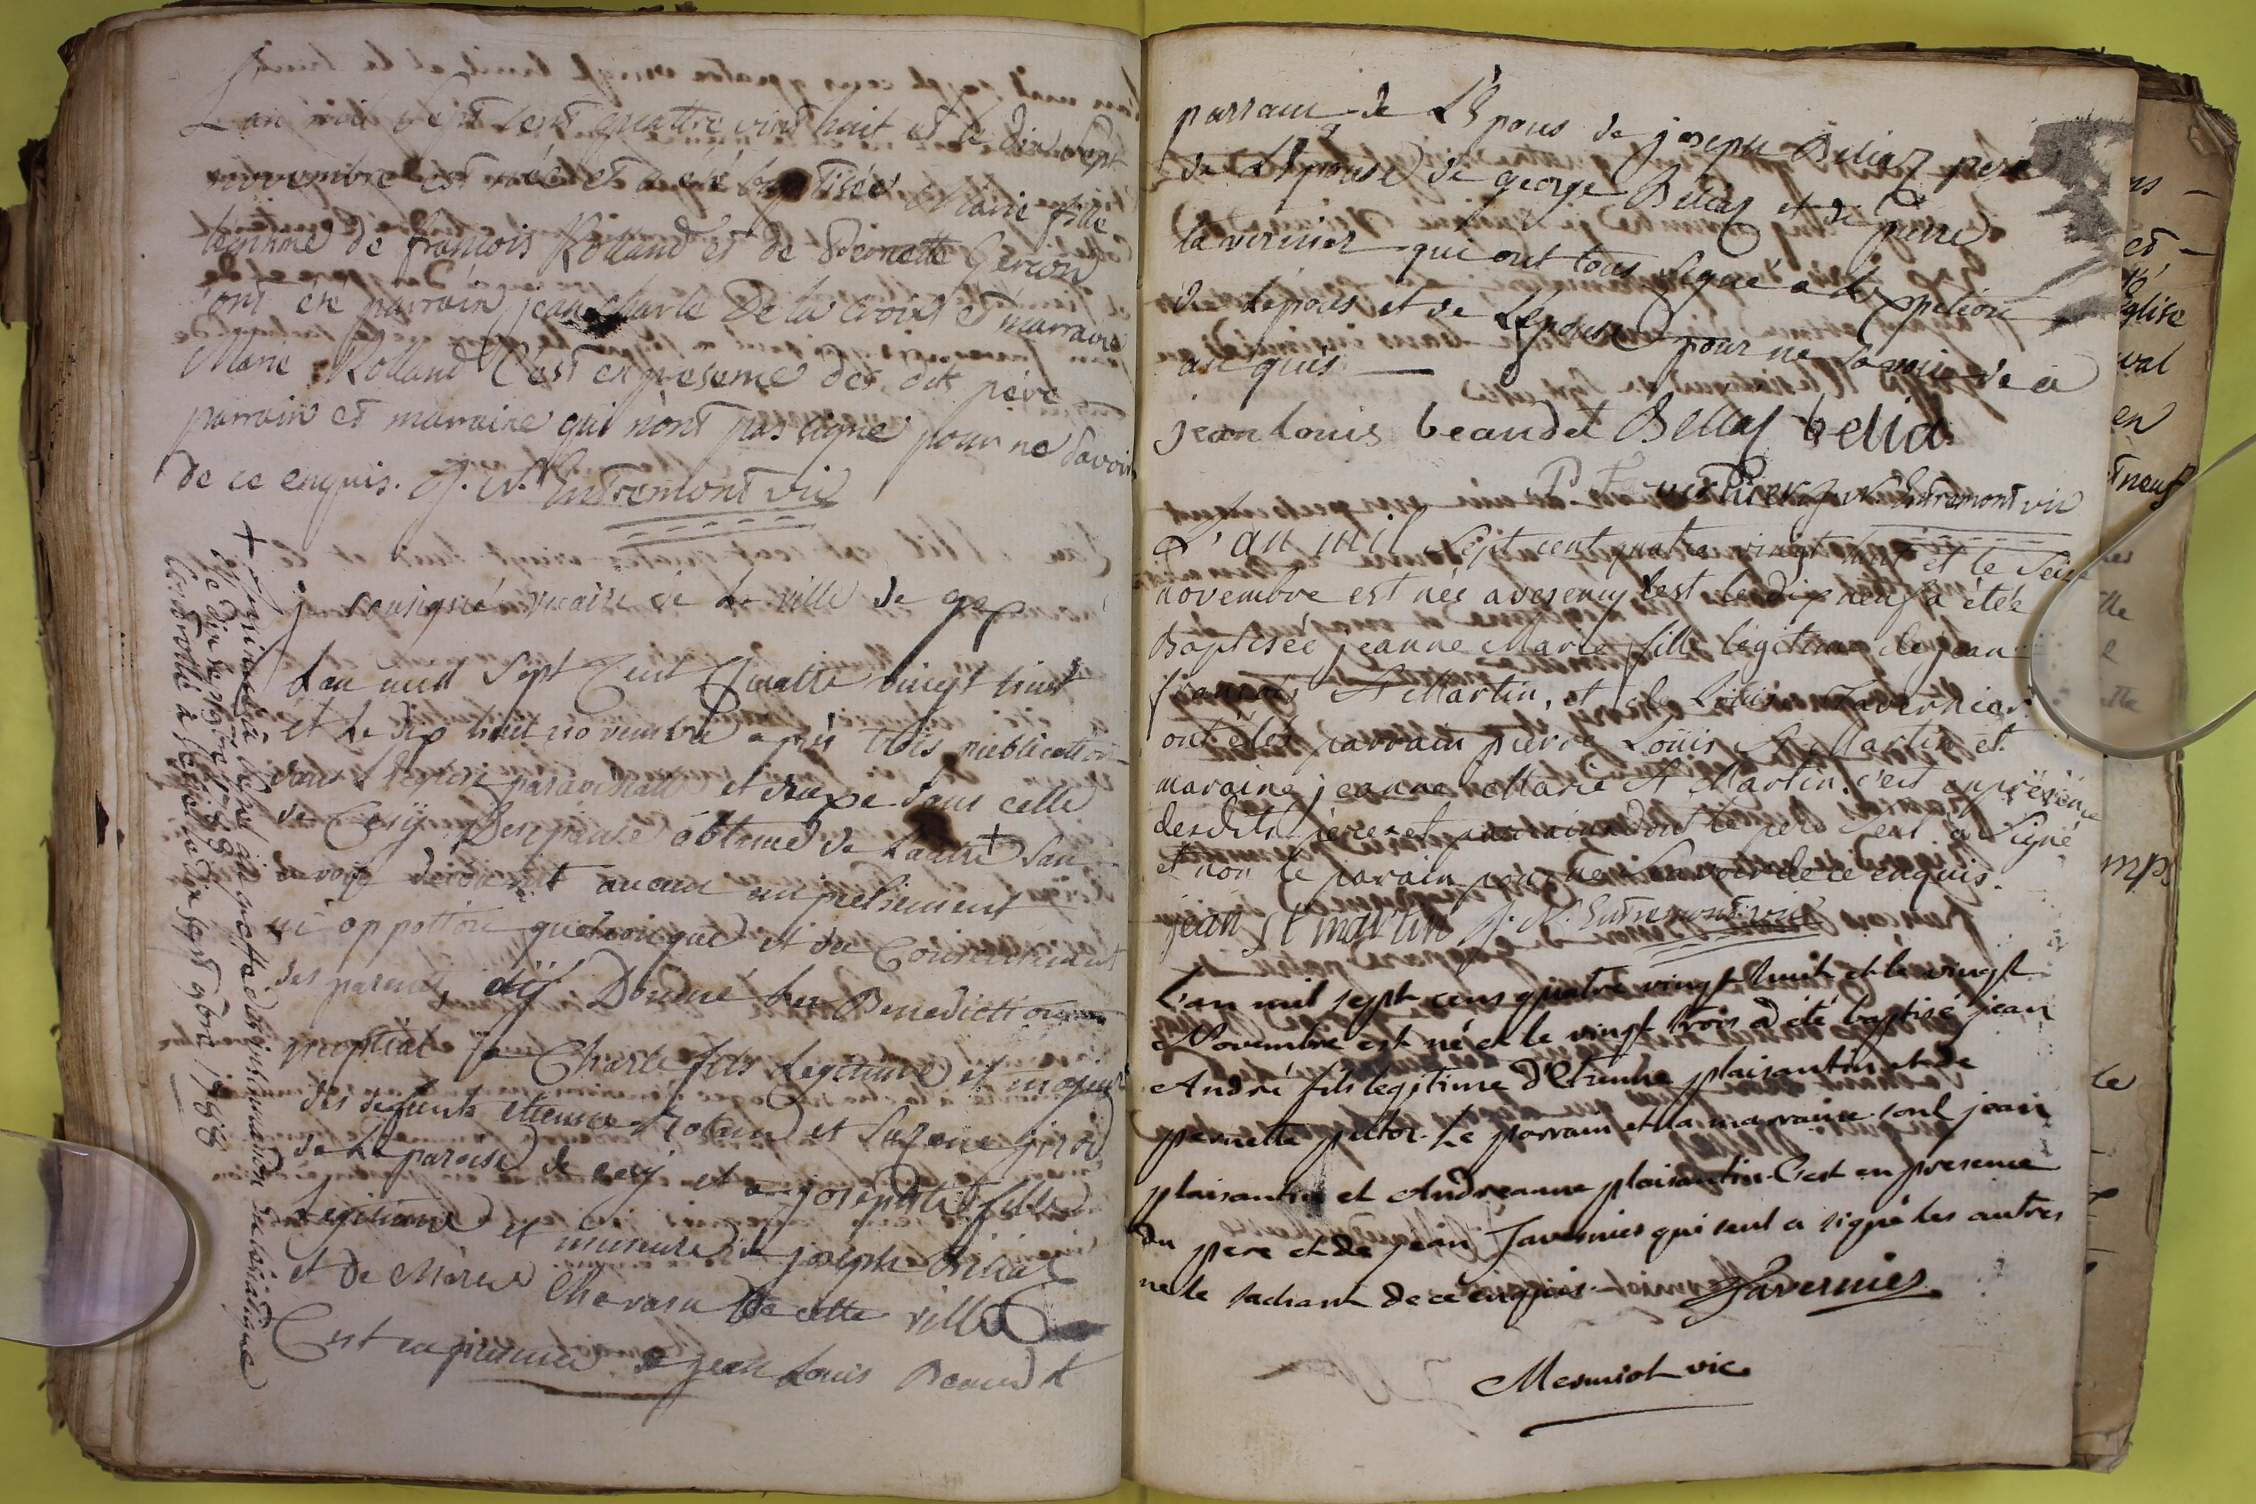 L'an mil sept cent quattre vint huit et le dix sept
novembre est née et a été baptisée Marie fille
legitime de françois Rolland et de Pernette Gerson
ont été parrain jean charle De la croix et marraine
Marie Rolland C'est en presence des dits père
parrain et marraine qui n'ont pas signé pour ne savoir
de ce enquis. J. N. Entremont vic
je sousigné vicaire de la ville de gex
L'an mil Sept Cent Quatre vingt huit
et le dix huit novembre apres trois publication
dans l'Eglise paroichialle et dans celle
de Cesÿ Despense obtenue de l'autre + san
avoir decouvert aucun empechement
ni oppotion quelconque et du Consentement
des parents, aÿ Donné la Benediction
nuptial a Charle fils Legitime et majeur
des defunts etienne Roland et Suzane girod
de la paroise de cesÿ et a josephte fille
Legitime et mineure de joseph Béliaz
et de Marie Chavasu de cette ville
C'est en presence de jean Louis Beaudet
+ insinuée à Gex au greffe des insinuations
le dix de 9bre 1788
Controllé à Gex le dix sept 9bre 1788
parrain de L'Epous de joseph Béliaz pere
de L'Epouse de george Béliaz et de pierre
tavernier qui ont tous signé a L'Exption
de L'epous et de L'Epouse pour ne savoir de ce
enquis
jean louis beaudet Bellaz belia
P. Tavernier J. N. Entremont vic
L'an mil Sept cent quatre vingt huit et le Seize
novembre est née a vesency C'est le dix neuf a étéé
Baptisée jeanne Marie fille légitime de jean
françois St Martin, et de Louise Tavernier
ont étés parrain pierre Loüis St Martin et
maraine jeanne Marie St Martin. c'est en présence
desdits pères et parrains dont le père seul a Signé
et non le parain pour ne Savoir de ce enquis.
jean st martin J. N. Entremont vic
L'an mil sept cens quatre vingt huit et le vingt
Novembre est né et le vingt trois a été baptisé jean
André fils legitime d'Etienne plaisantin et de
pernette pitor. Le parrain et la marraine sont jean
plaisantin et Andreanne plaisantin. C'est en presence
du pere et de jean Tavernier qui seul a signé les autres
ne le sachant de ce enquis. Tavernier
Mermiot vic